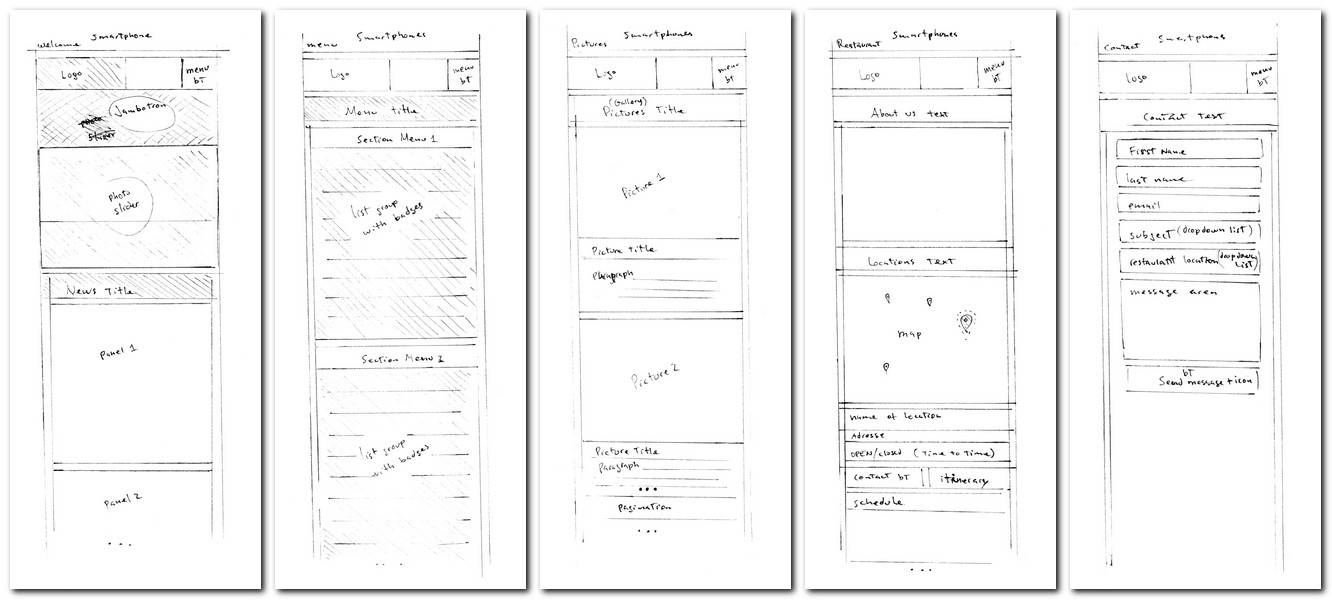 Smartphone
welcome
Logo
menu
bt
Jambotron
slider
photo
slider
News Title
Panel 1
Panel 2
...
Smartphones
menu
Logo
menu
bt
Menu title
Section Menu 1
list group
with badges
Section Menu 2
list group
with badges
...
Smartphones
Pictures
Logo
menu
bt
(Gallery)
Pictures Title
Picture 1
Picture title
Paragraph
Picture 2
Picture Title
Paragraph
...
pagination
...
Smartphones
Restaurant
Logo
menu
bt
About us text
Locations Text
map
name of location
Adresse
OPEN/closed (Time to Time)
contact bt
itinerary
schedule
...
Smartphone
Contact
Logo
menu
bt
Contact Text
First Name
last name
email
subject (dropdown list)
restaurant location (dropdown
List)
message area
bt
Send message + icon